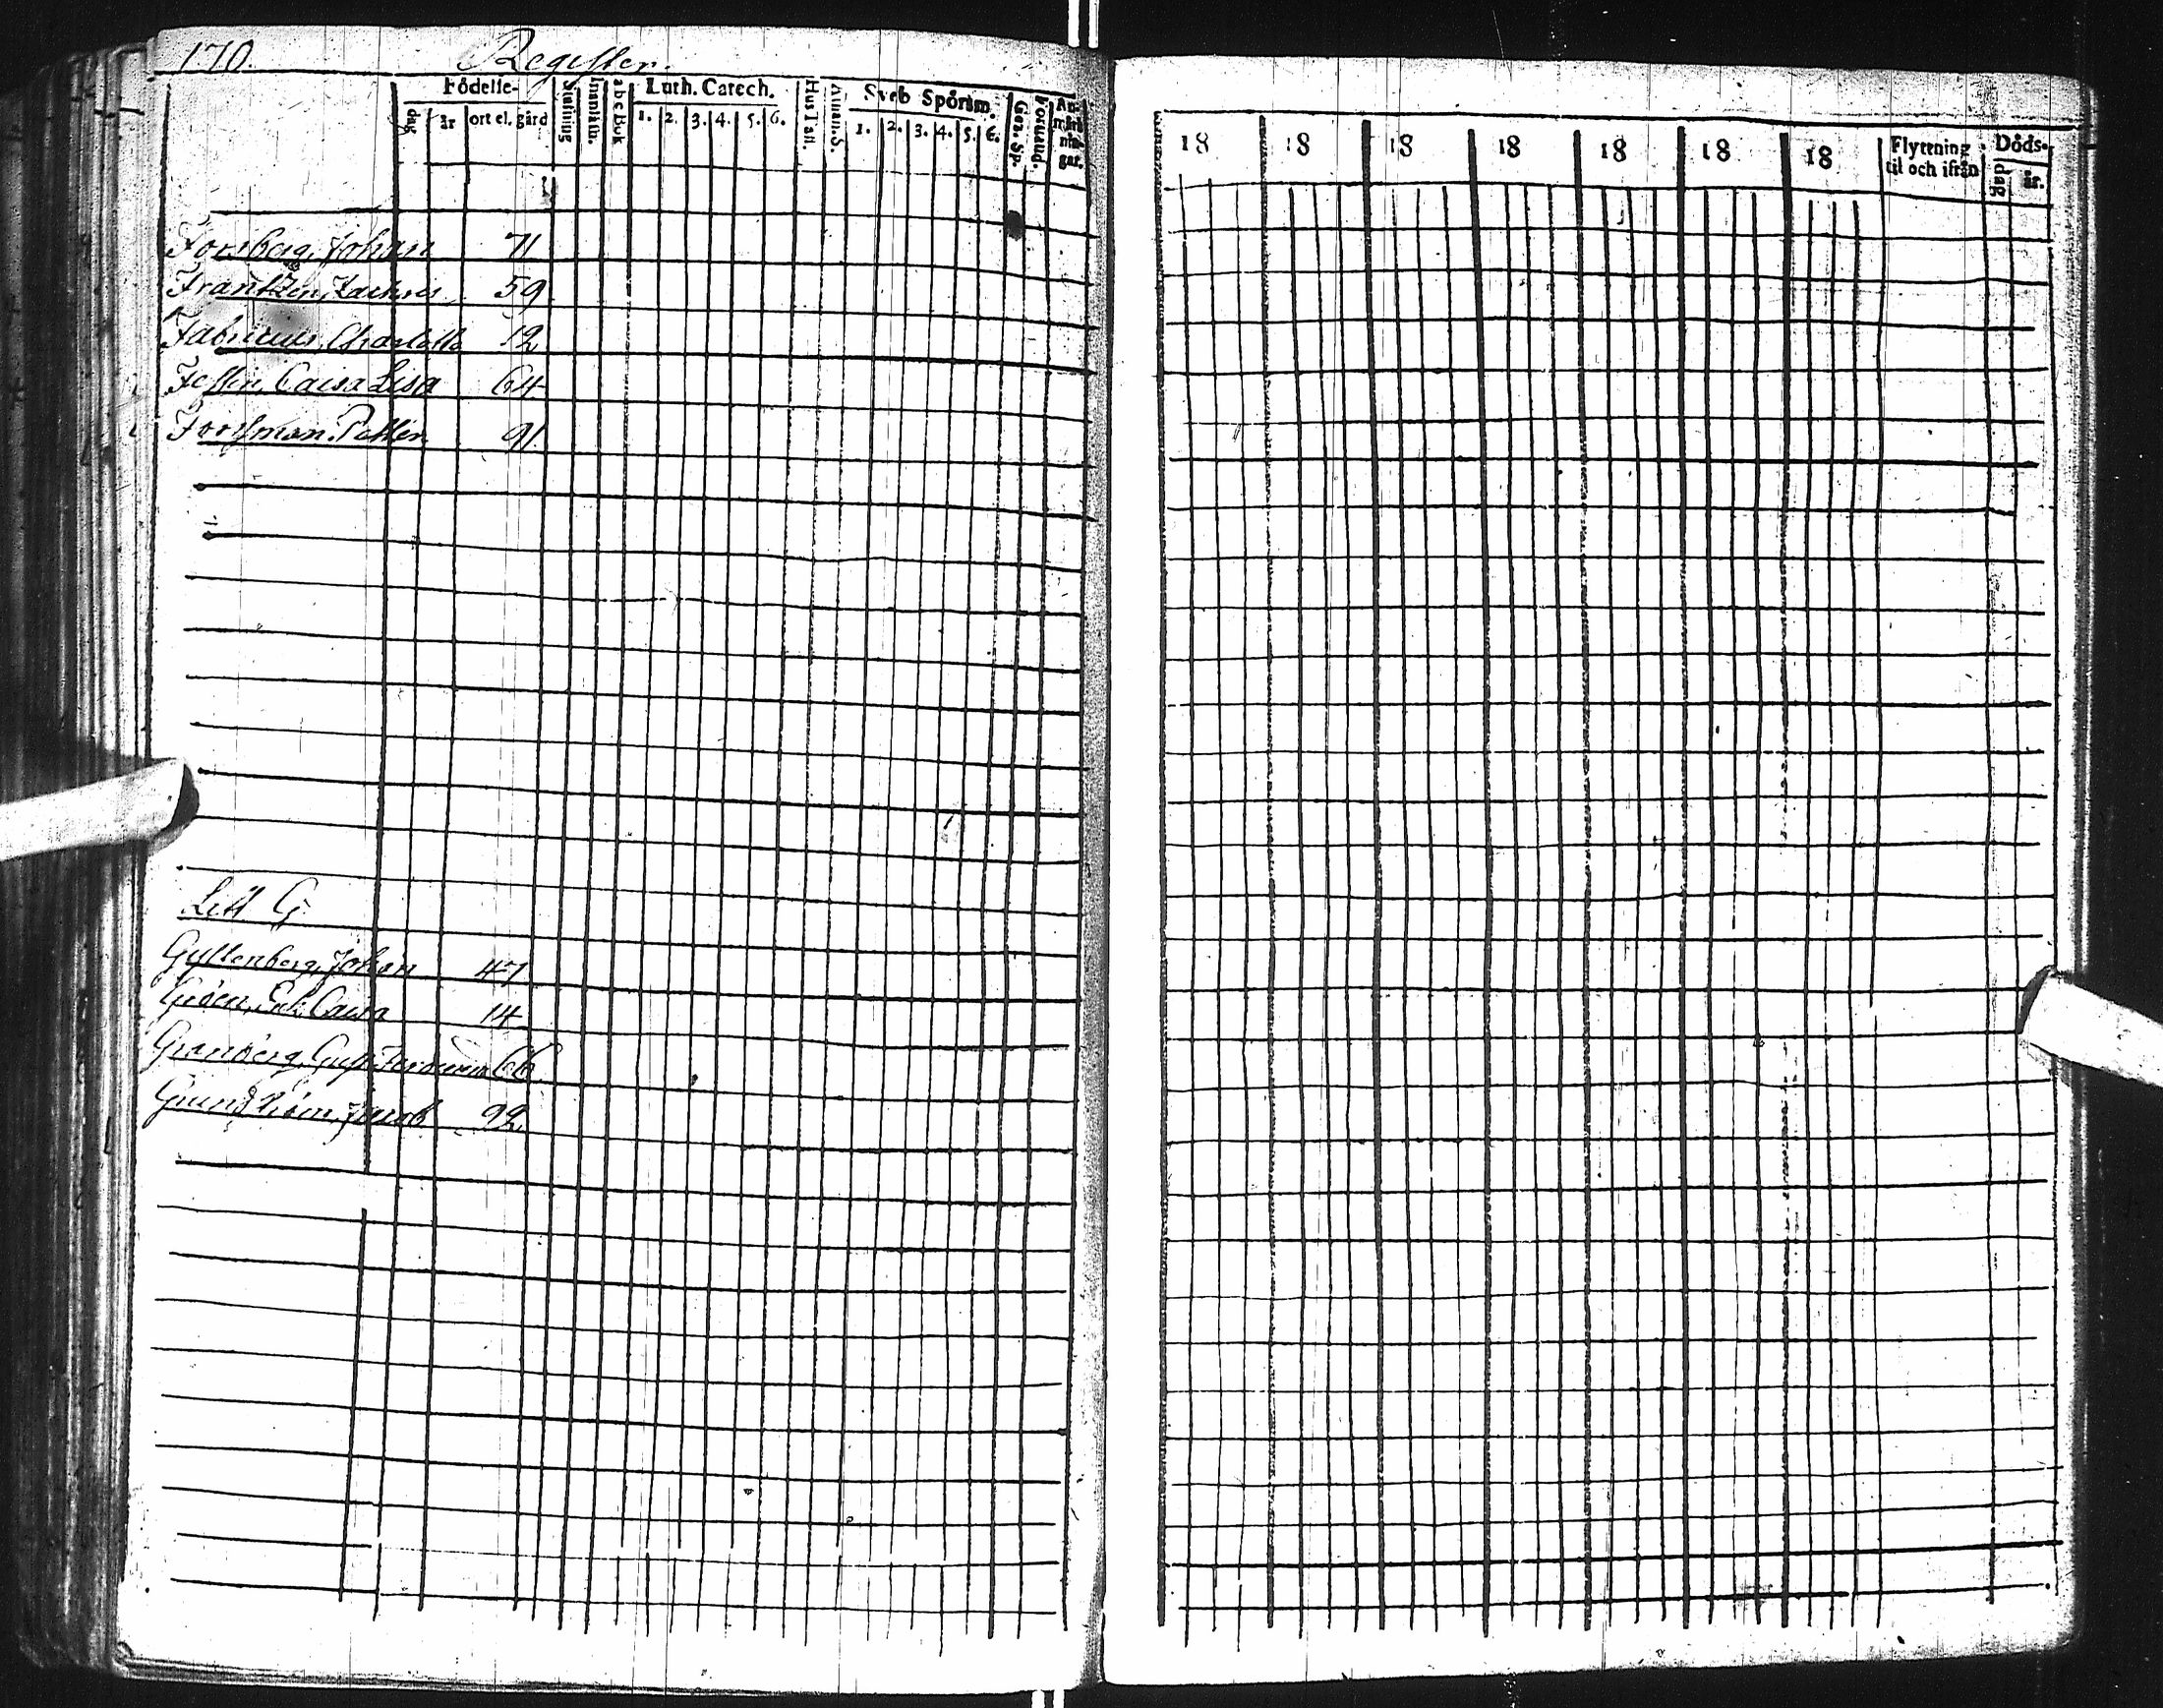 170. Register.
Födelse- Stafning Innanläsn. abcBok Luth. Catech. Hustafl. Athan. S. Sveb Spörsm. Ger. Sp. Förstånd. Anmärkningar.
dag år ort el. gård 1. 2. 3. 4. 5. 6. 1. 2. 3. 4. 5. 6.
Forsberg, Johan 71
Frantzen, Zachris 59
Fabricius, Charlotta 12
Fessin, Caisa Lisa 64
Forssman, Petter 91
Litt G.
Gyllenberg, Johan 47
Gröen, Caisa 14
Granberg, Gust. Ferdinan 66
Grundström, Jacob 92
18 18 18 18 18 18 18 Flyttning til och ifrån Döds-
dag år.